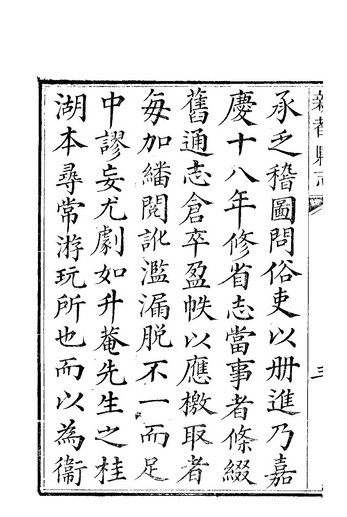 新都縣志
三
承乏稽圖問俗吏以册進乃嘉
慶十八年修省志當事者條綴
舊通志倉卒盈帙以應檄取者
每加繙閱訛濫漏脱不一而足
中謬妄尤劇如升菴先生之桂
湖本尋常游玩所也而以為衞